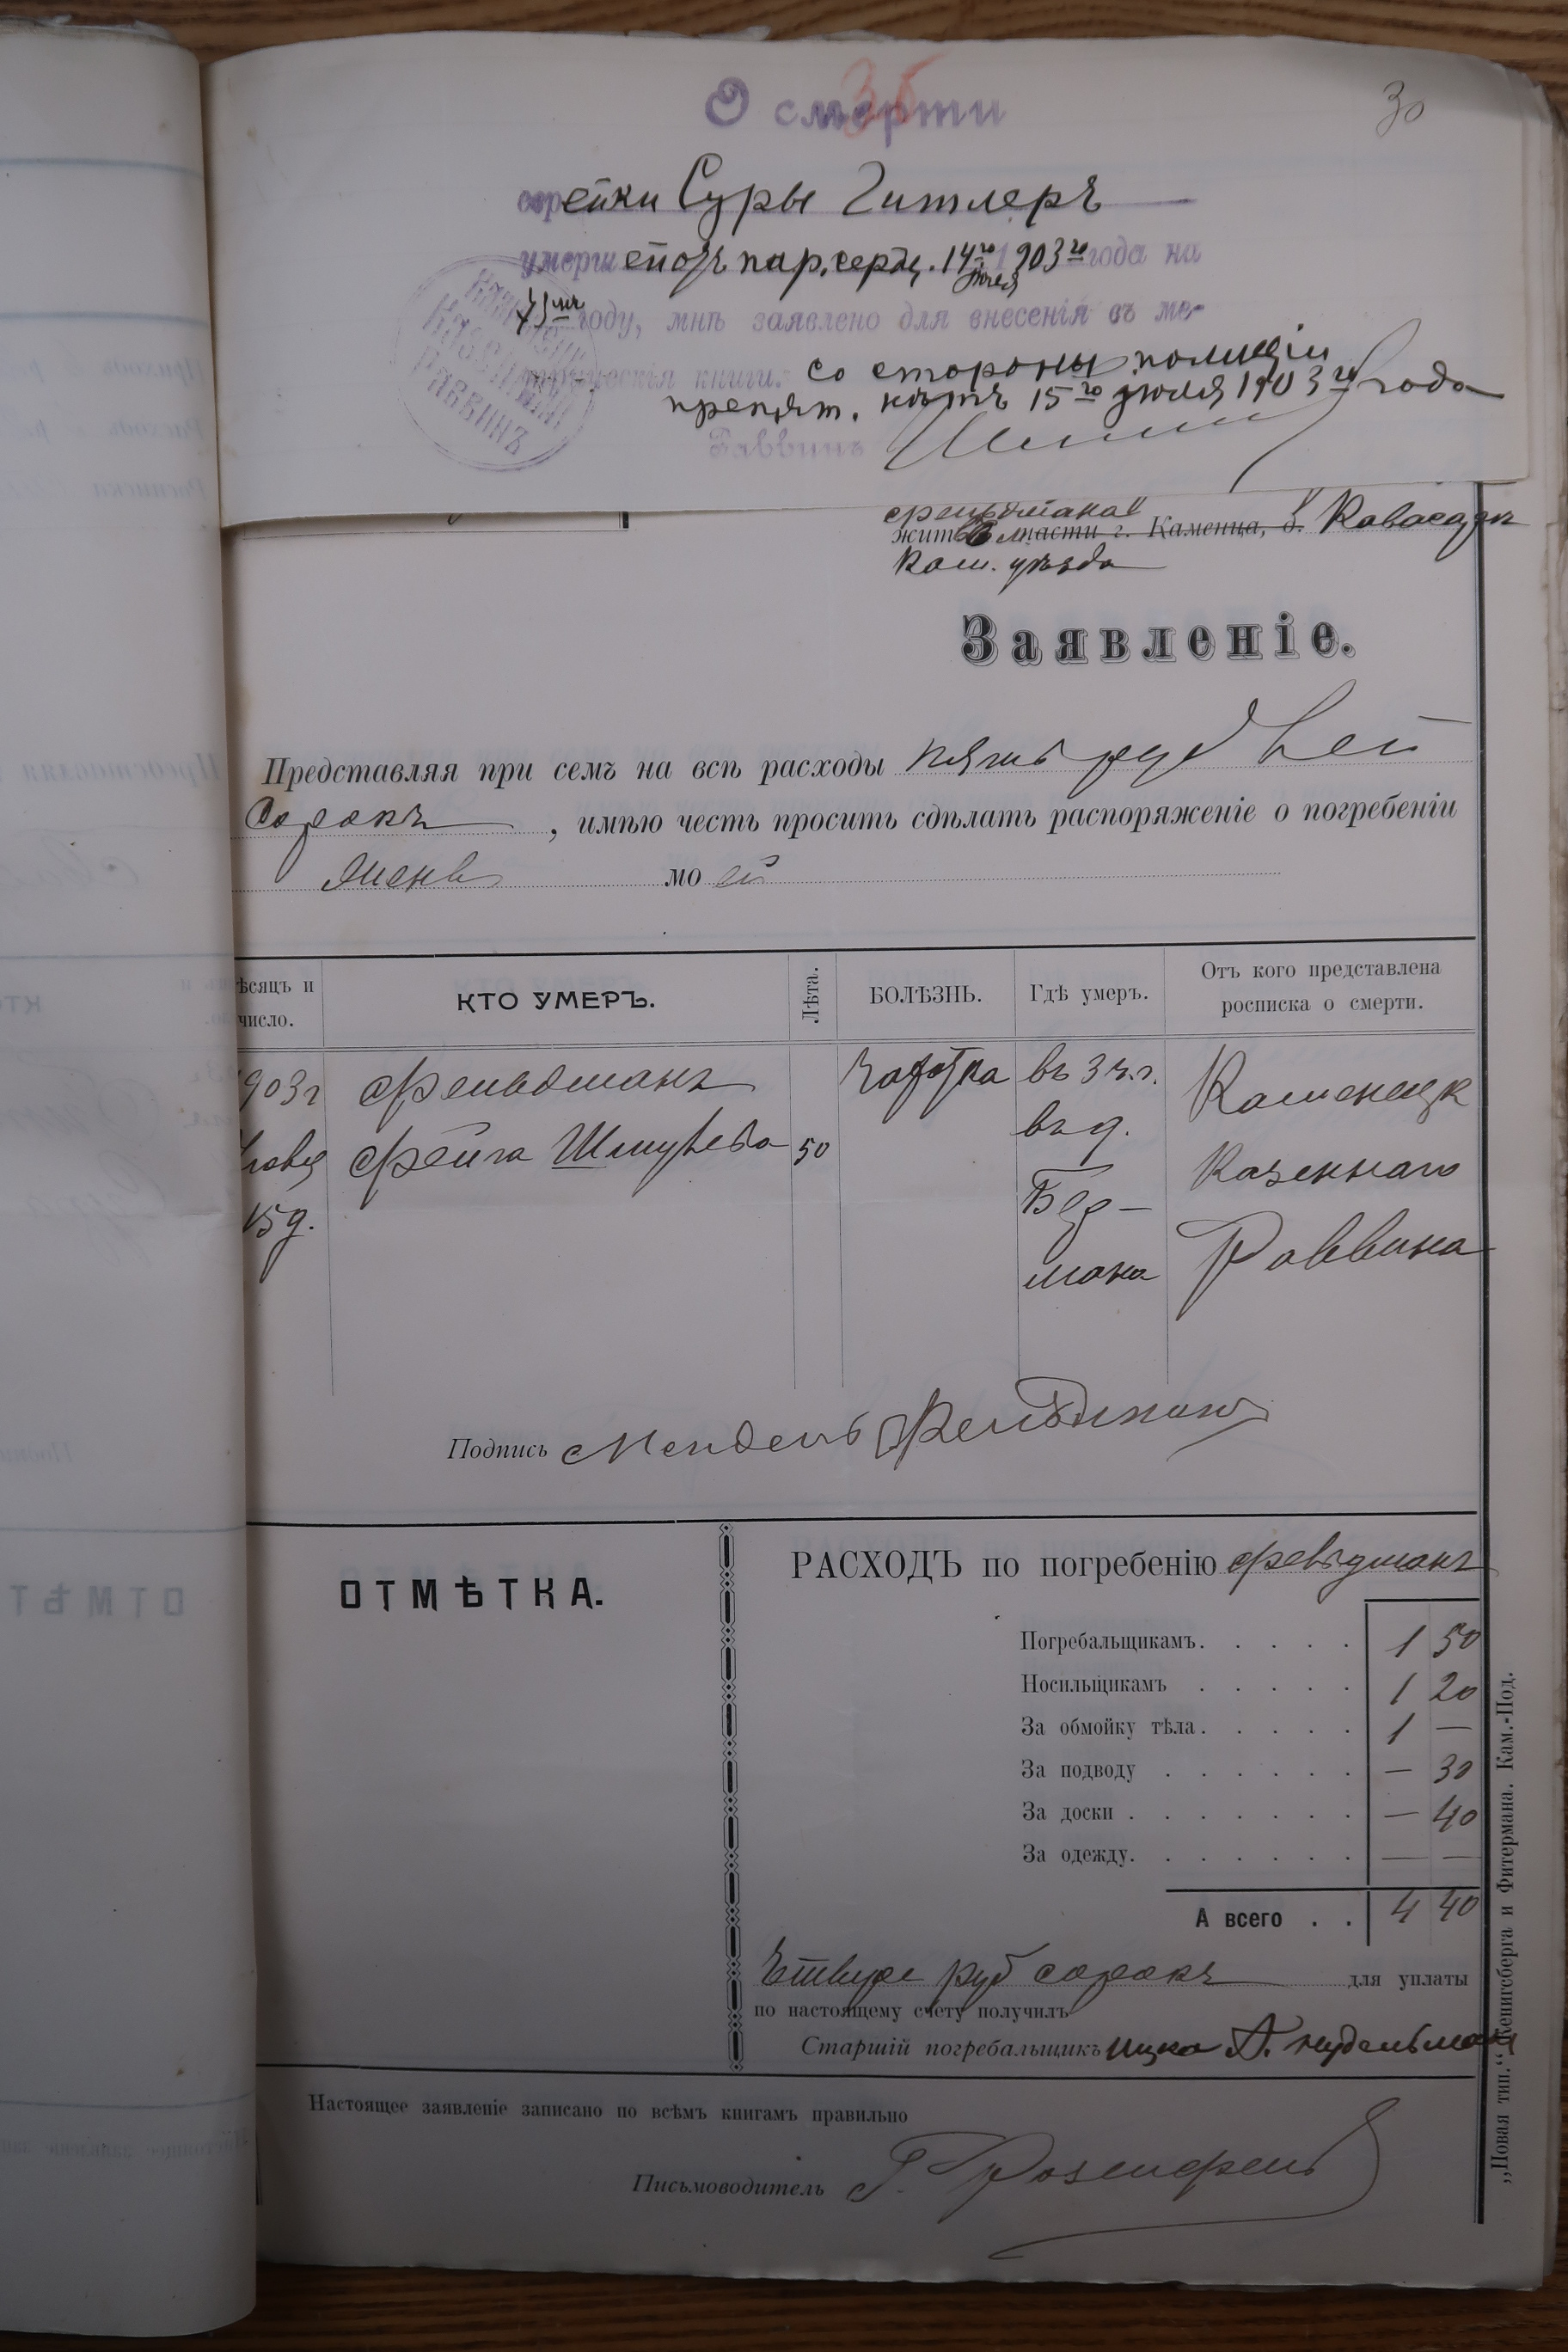 О смерти
35
30
еврейки Суры Гитлеръ
умершей отъ пар. сердц. 14го Іюля 1903го года на
году, мнѣ заявлено для внесенія въ ме-
трическія книги. со стороны полиціи
препят. нѣтъ 15го Іюля 1903го года
Раввинъ
КАЗЕННЫЙ
РАВВИНЪ
Фельдмана
жит части г. Каменца, д.
Кам. уѣзда
Заявленіе.
Представляя при семъ на всѣ расходы пять руб
Сорокъ , имѣю честь просить сдѣлать распоряженіе о погребеніи
жены моей
ѣсяцъ и число.
КТО УМЕРЪ.
Лѣта.
БОЛѢЗНЬ.
Гдѣ умеръ.
Отъ кого представлена росписка о смерти.
903 г
15 д.
Фельдманъ
Фейга Шмулева
50
Чахотка
въ 3 ч. г.
въ д.
мана
Каменецк
Казеннаго
Раввина
Подпись Мендель Фельдманъ
ОТМѢТКА.
РАСХОДЪ по погребенію Фельдманъ
Погребальщикамъ. . . . . 1 50
Носильщикамъ . . . . . 1 20
За обмойку тѣла. . . . . 1 —
За подводу . . . . . . — 30
За доски . . . . . . . — 40
За одежду. . . . . . . — —
А всего . . 4 40
руб сорокъ для уплаты
по настоящему счету получилъ
Старшій погребальщикъ Ицко А. Нудельман
Настоящее заявленіе записано по всѣмъ книгамъ правильно
Письмоводитель Г. Розенфельд
„Новая тип.“ Кенигсберга и Фитермана. Кам.-Под.